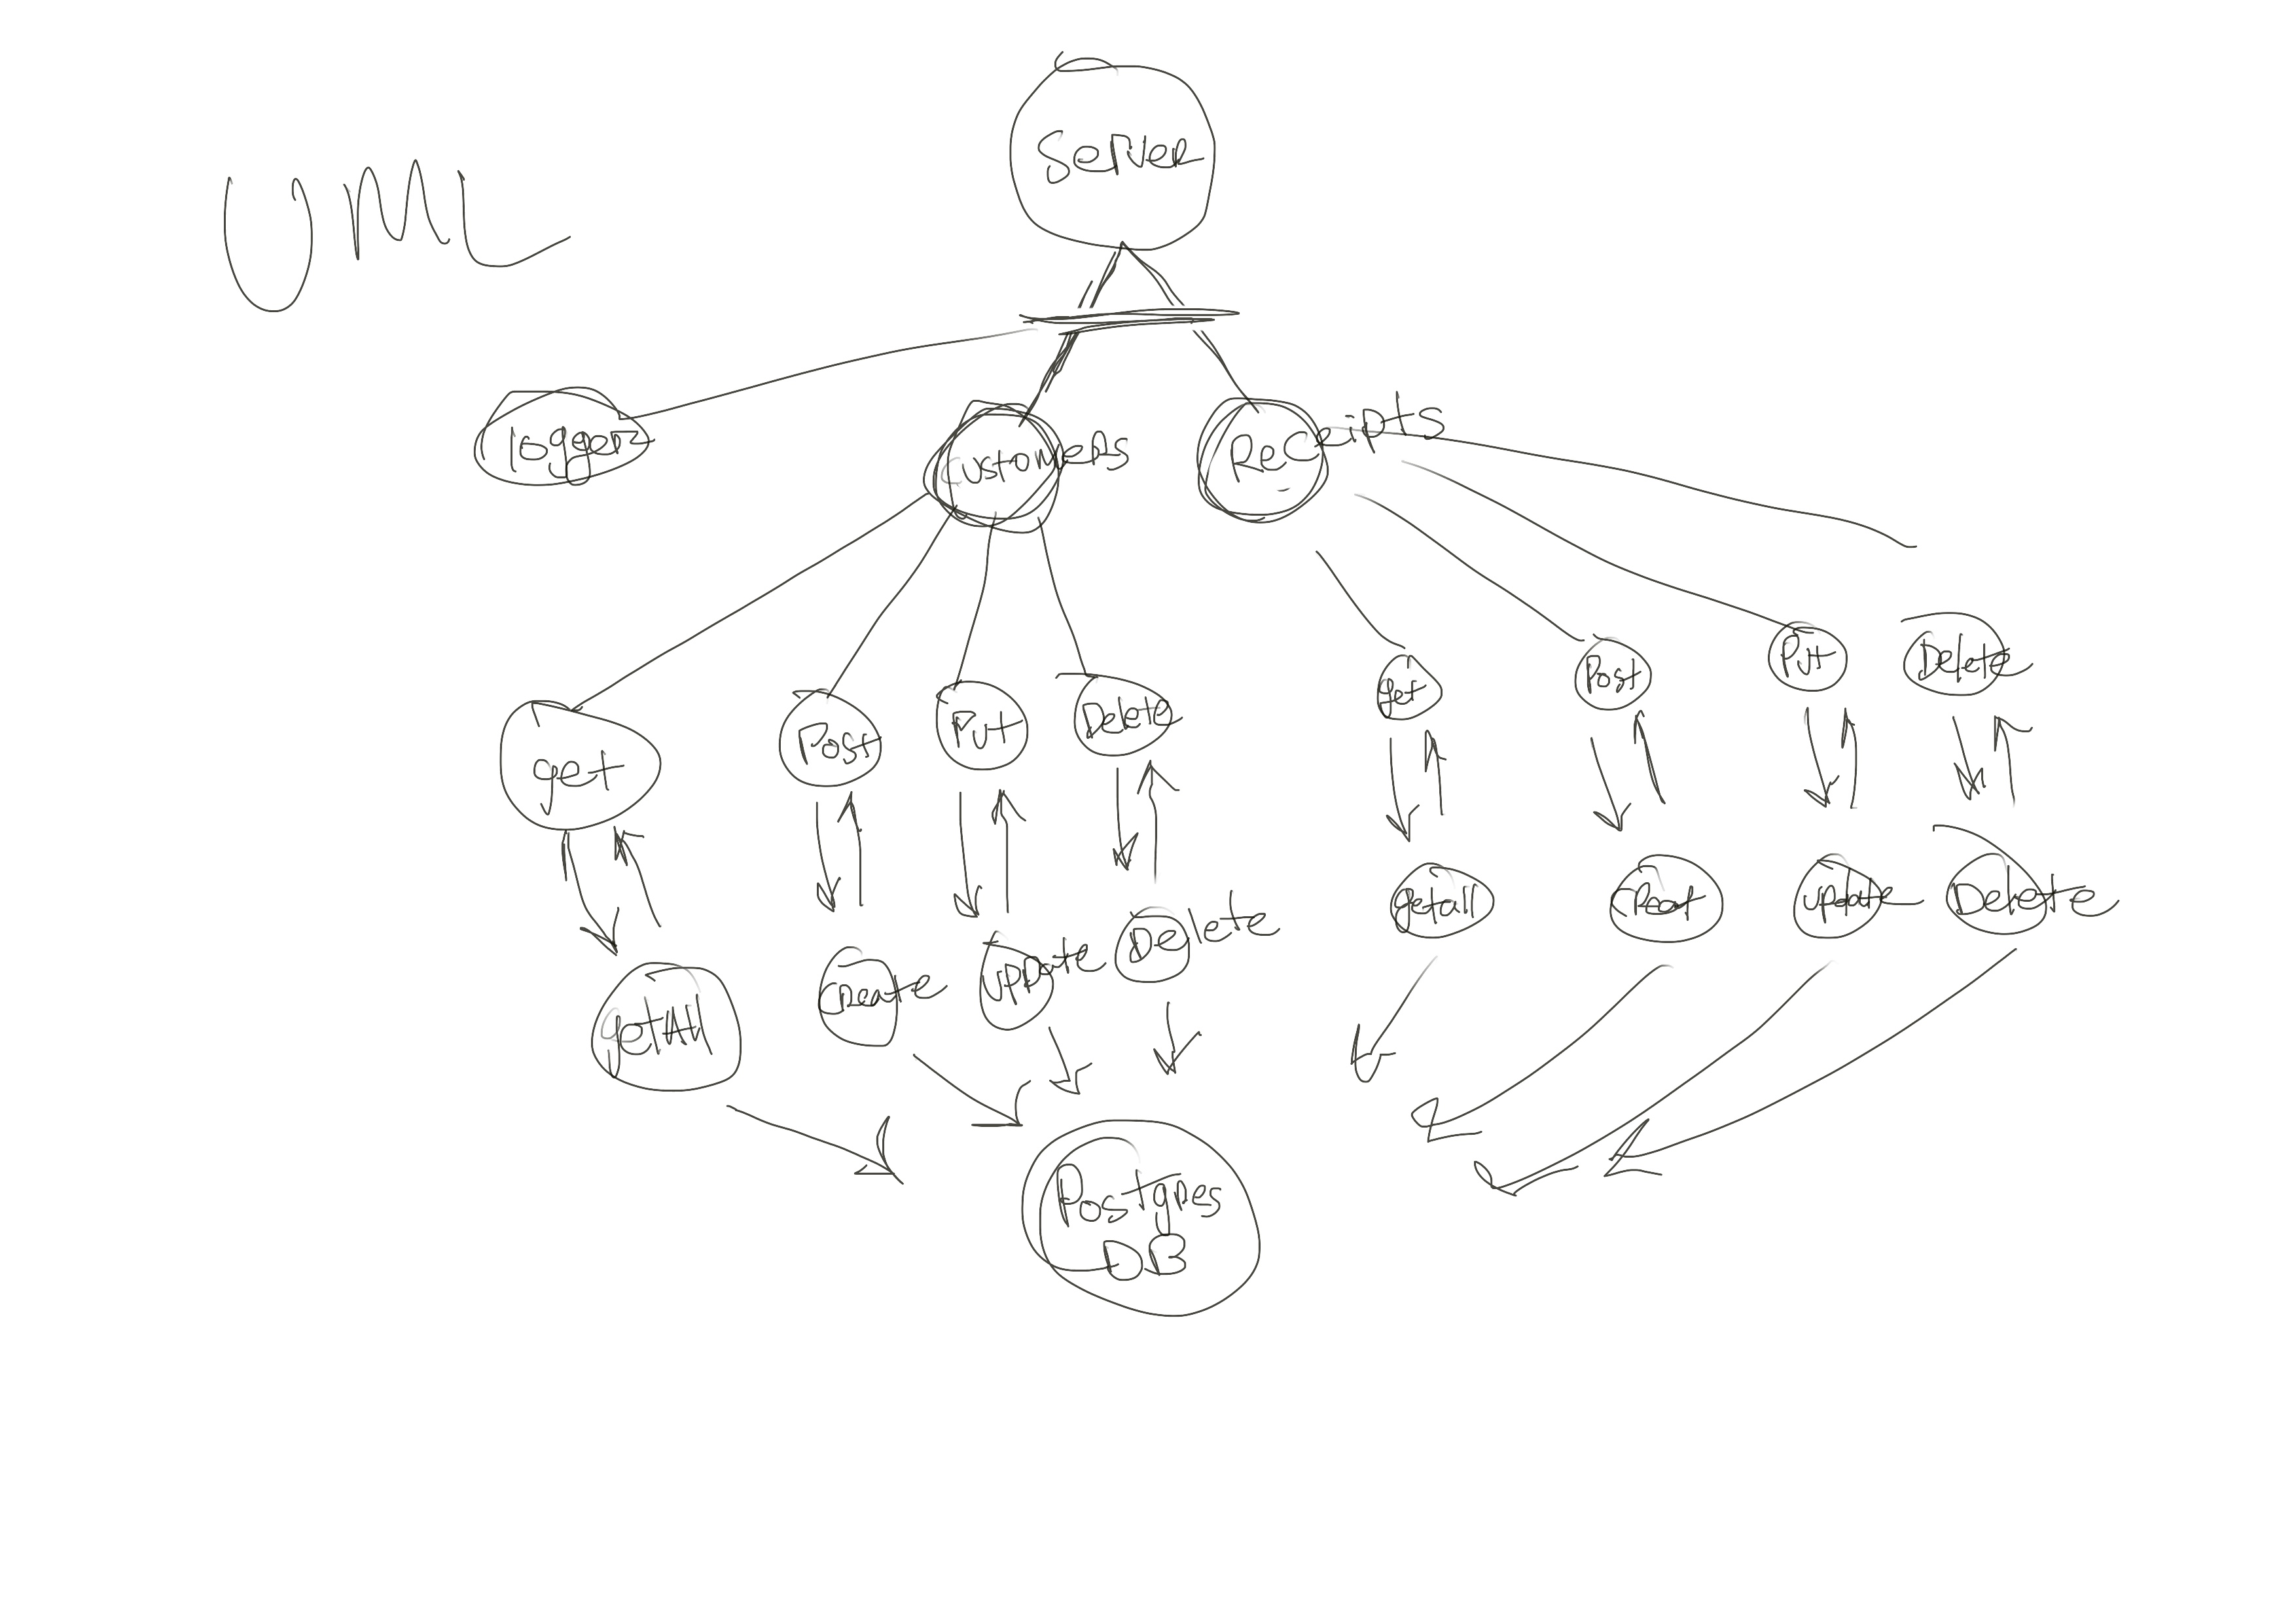 Server
UML
logger
Customers
Receipts
get
Post
Put
Delete
get
Post
Put
Delete
getAll
Create
UPDate
Delete
getall
update
Delete
Postgres
DB